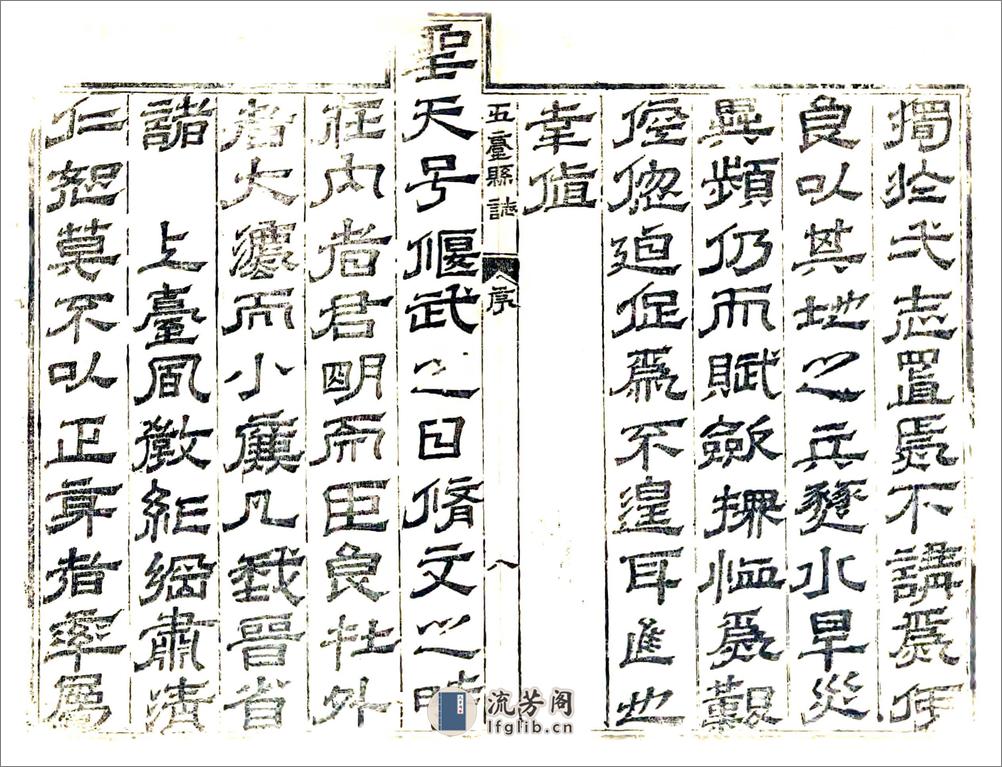 獨於志置焉不講焉何
良以其地之兵燹水旱災
異頻仍而賦斂撫恤爲艱
倥偬廹促爲不遑耳進也
幸值
五臺縣誌 序 八
聖天子偃武之日脩文之時
在內者君明而臣良在外
者大灋而小廉凡我晉省
諸 上臺風教紀綱肅清
仁恕莫不以正身者率屬
流芳阁
lfglib.cn